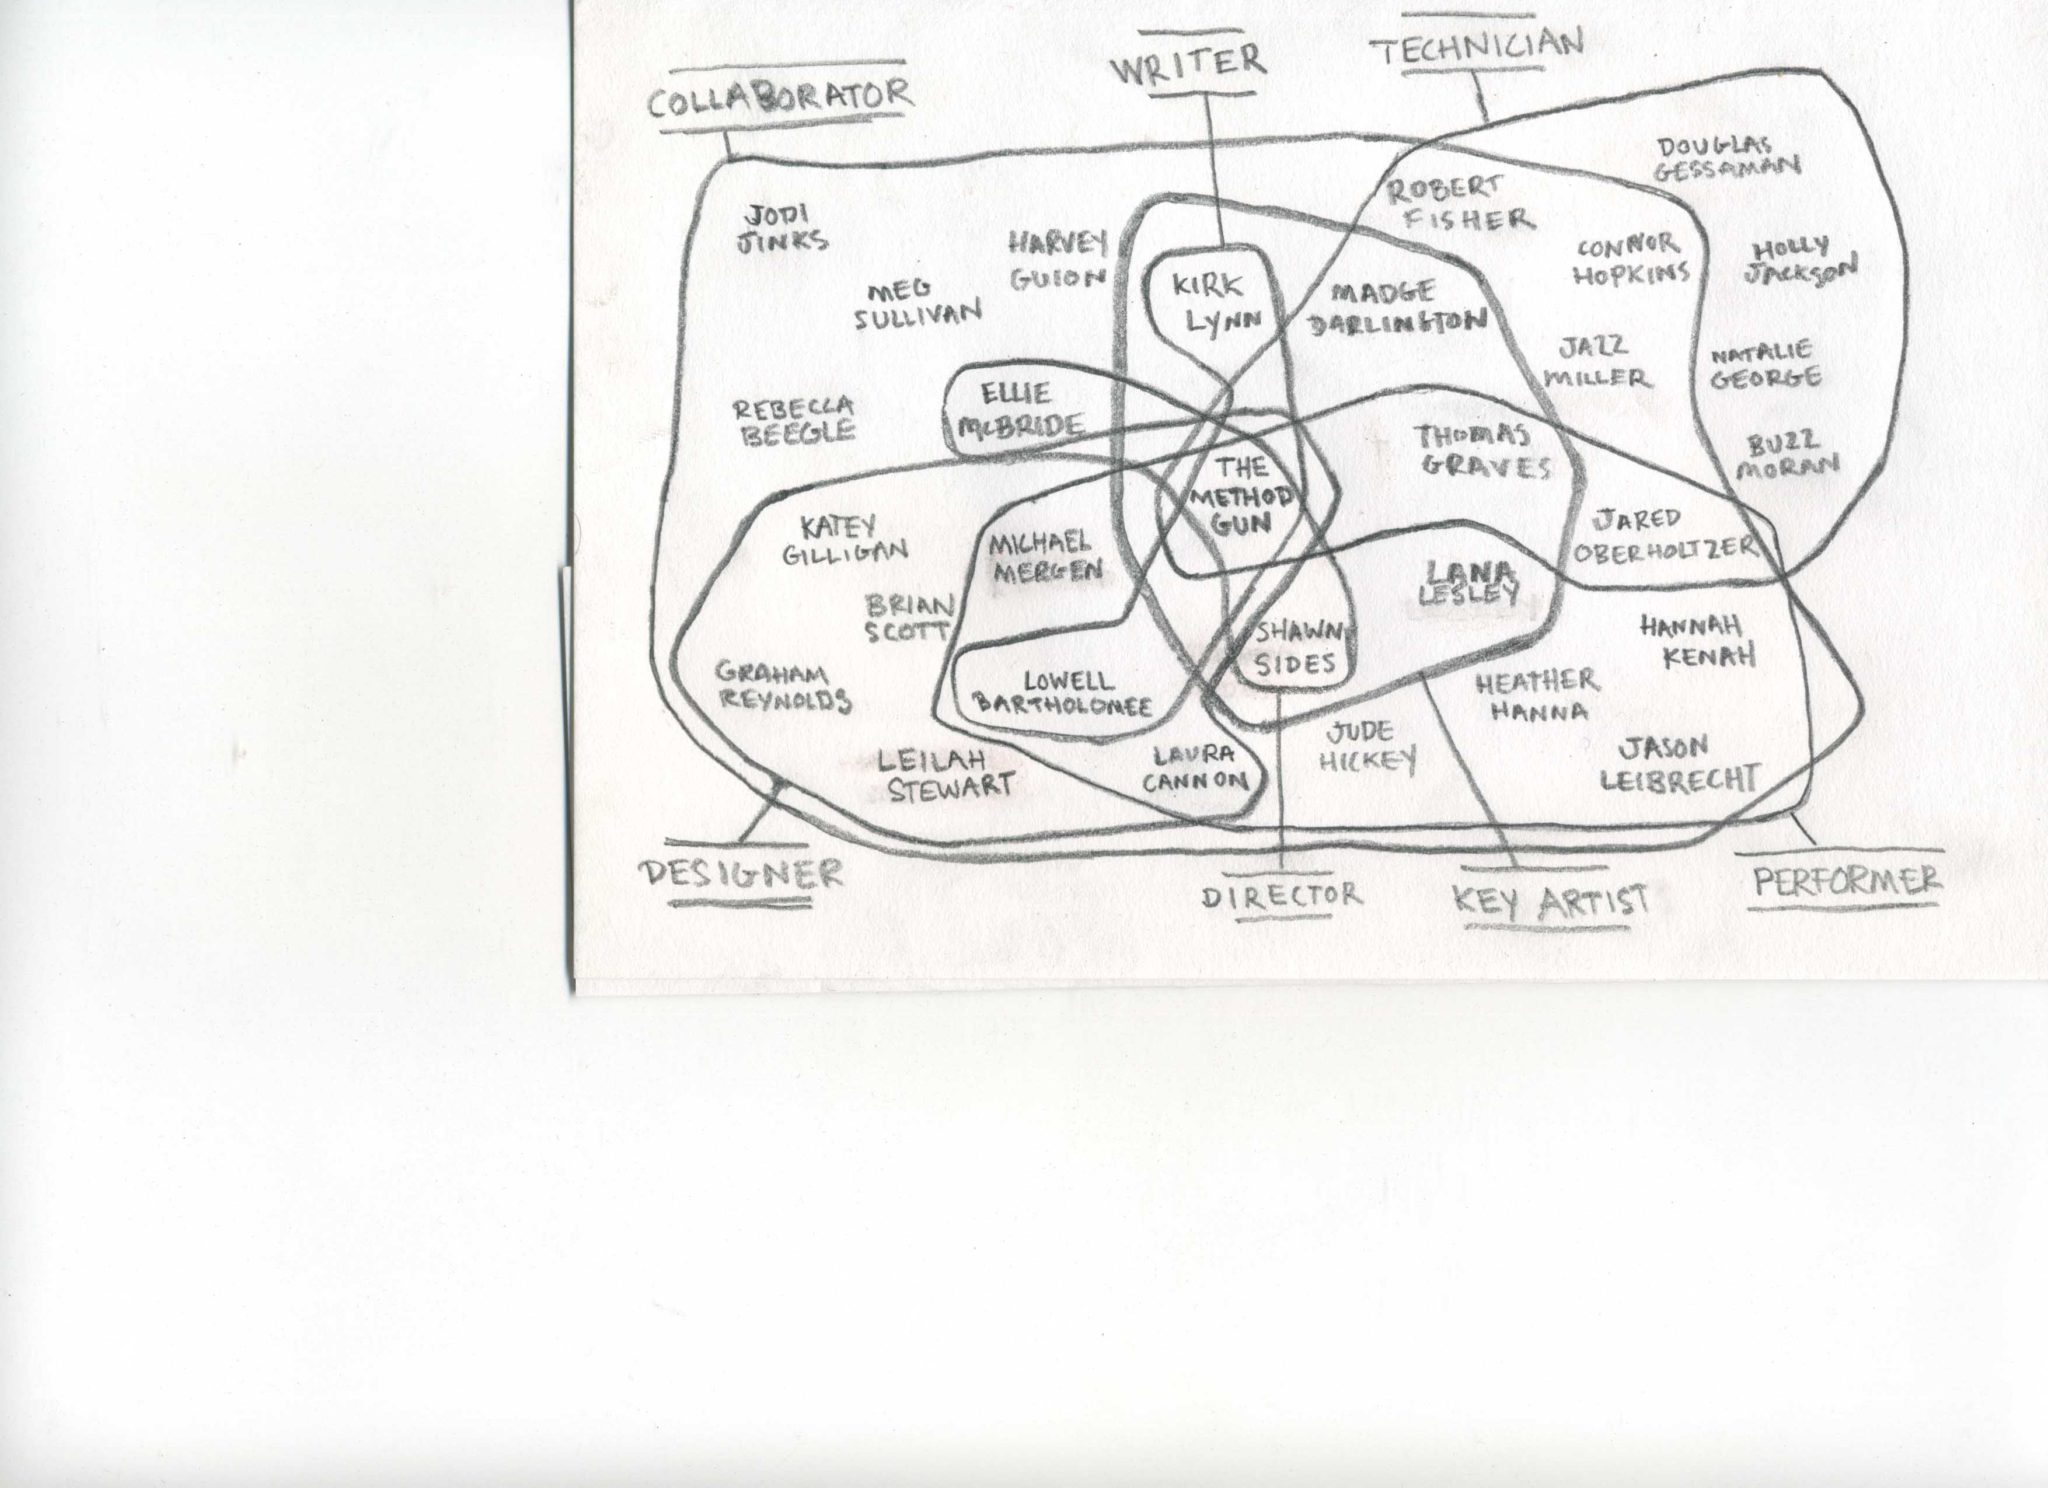 COLLABORATOR
WRITER
TECHNICIAN
DOUGLAS
GESSAMAN
ROBERT
FISHER
JODI
JINKS
HARVEY
GUION
CONNOR
HOPKINS
HOLLY
JACKSON
MEG
SULLIVAN
KIRK
LYNN
MADGE
DARLINGTON
JAZZ
MILLER
NATALIE
GEORGE
REBECCA
BEEGLE
ELLIE
McBRIDE
THOMAS
GRAVES
BUZZ
MORAN
THE
METHOD
GUN
KATEY
GILLIGAN
MICHAEL
MERGEN
JARED
OBERHOLTZER
BRIAN
SCOTT
LANA
LESLEY
SHAWN
SIDES
HANNAH
KENAH
GRAHAM
REYNOLDS
LOWELL
BARTHOLOMEE
HEATHER
HANNA
LEILAH
STEWART
LAURA
CANNON
JUDE
HICKEY
JASON
LEIBRECHT
DESIGNER
DIRECTOR
KEY ARTIST
PERFORMER